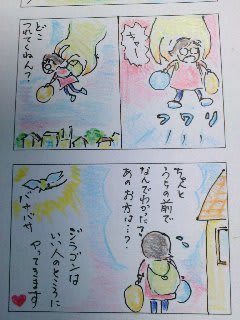 キャー
フワリ
どこ
つれてくねん?
ちゃんと
うちの前で
なんでわかった?
あのお方は…?
バサバサ
ジラゴンは
いい人のところに
やってきます